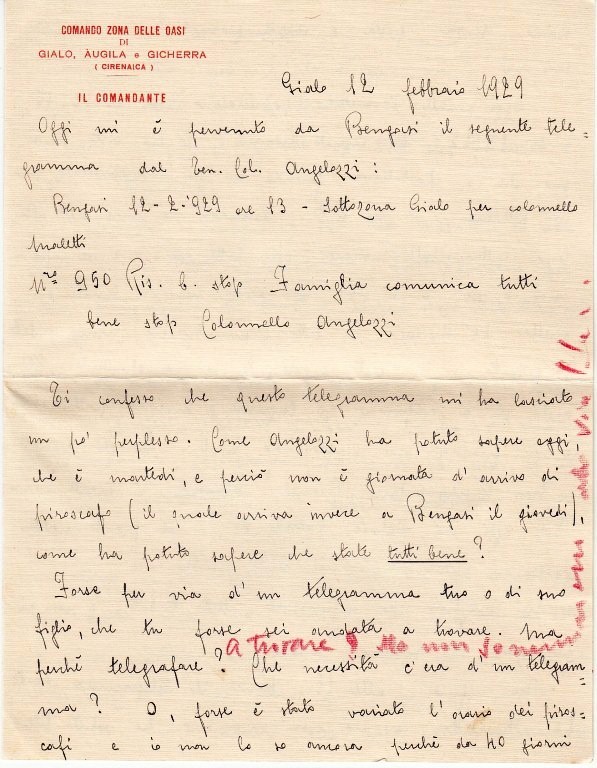 COMANDO ZONA DELLE OASI
DI
GIALO, ÀUGILA e GICHERRA
( CIRENAICA )
IL COMANDANTE
Gialo 12 febbraio 1929
Oggi mi è pervenuto da Bengasi il seguente tele=
gramma dal Ten. Col. Angelozzi :
Bengasi 12-2-'929 ore 13 - Sottozona Gialo per colonnello
Maletti
Nro 950 Ris. b. stop Famiglia comunica tutti
bene stop Colonnello Angelozzi
Ti confesso che questo telegramma mi ha lasciato
un po' perplesso. Come Angelozzi ha potuto sapere oggi,
che è martedi, e perciò non è giornata d'arrivo di
piroscafo (il quale arriva invece a Bengasi il giovedi),
come ha potuto sapere che state tutti bene ?
Forse per via d'un telegramma tuo o di suo
figlio, che tu forse sei andata a trovare. Ma
a trovare ? Ma non
perchè telegrafare ? Che necessità c'era d'un telegram=
ma ? O, forse è stato variato l'orario dei piros=
cafi e io non lo so ancora perchè da 40 giorni